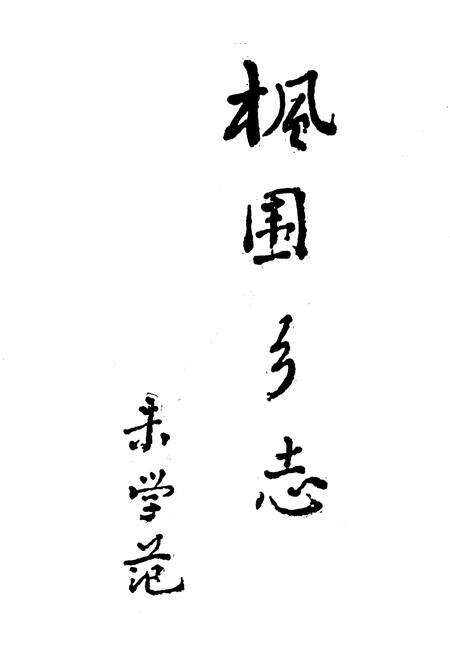 枫围乡志
朱学范